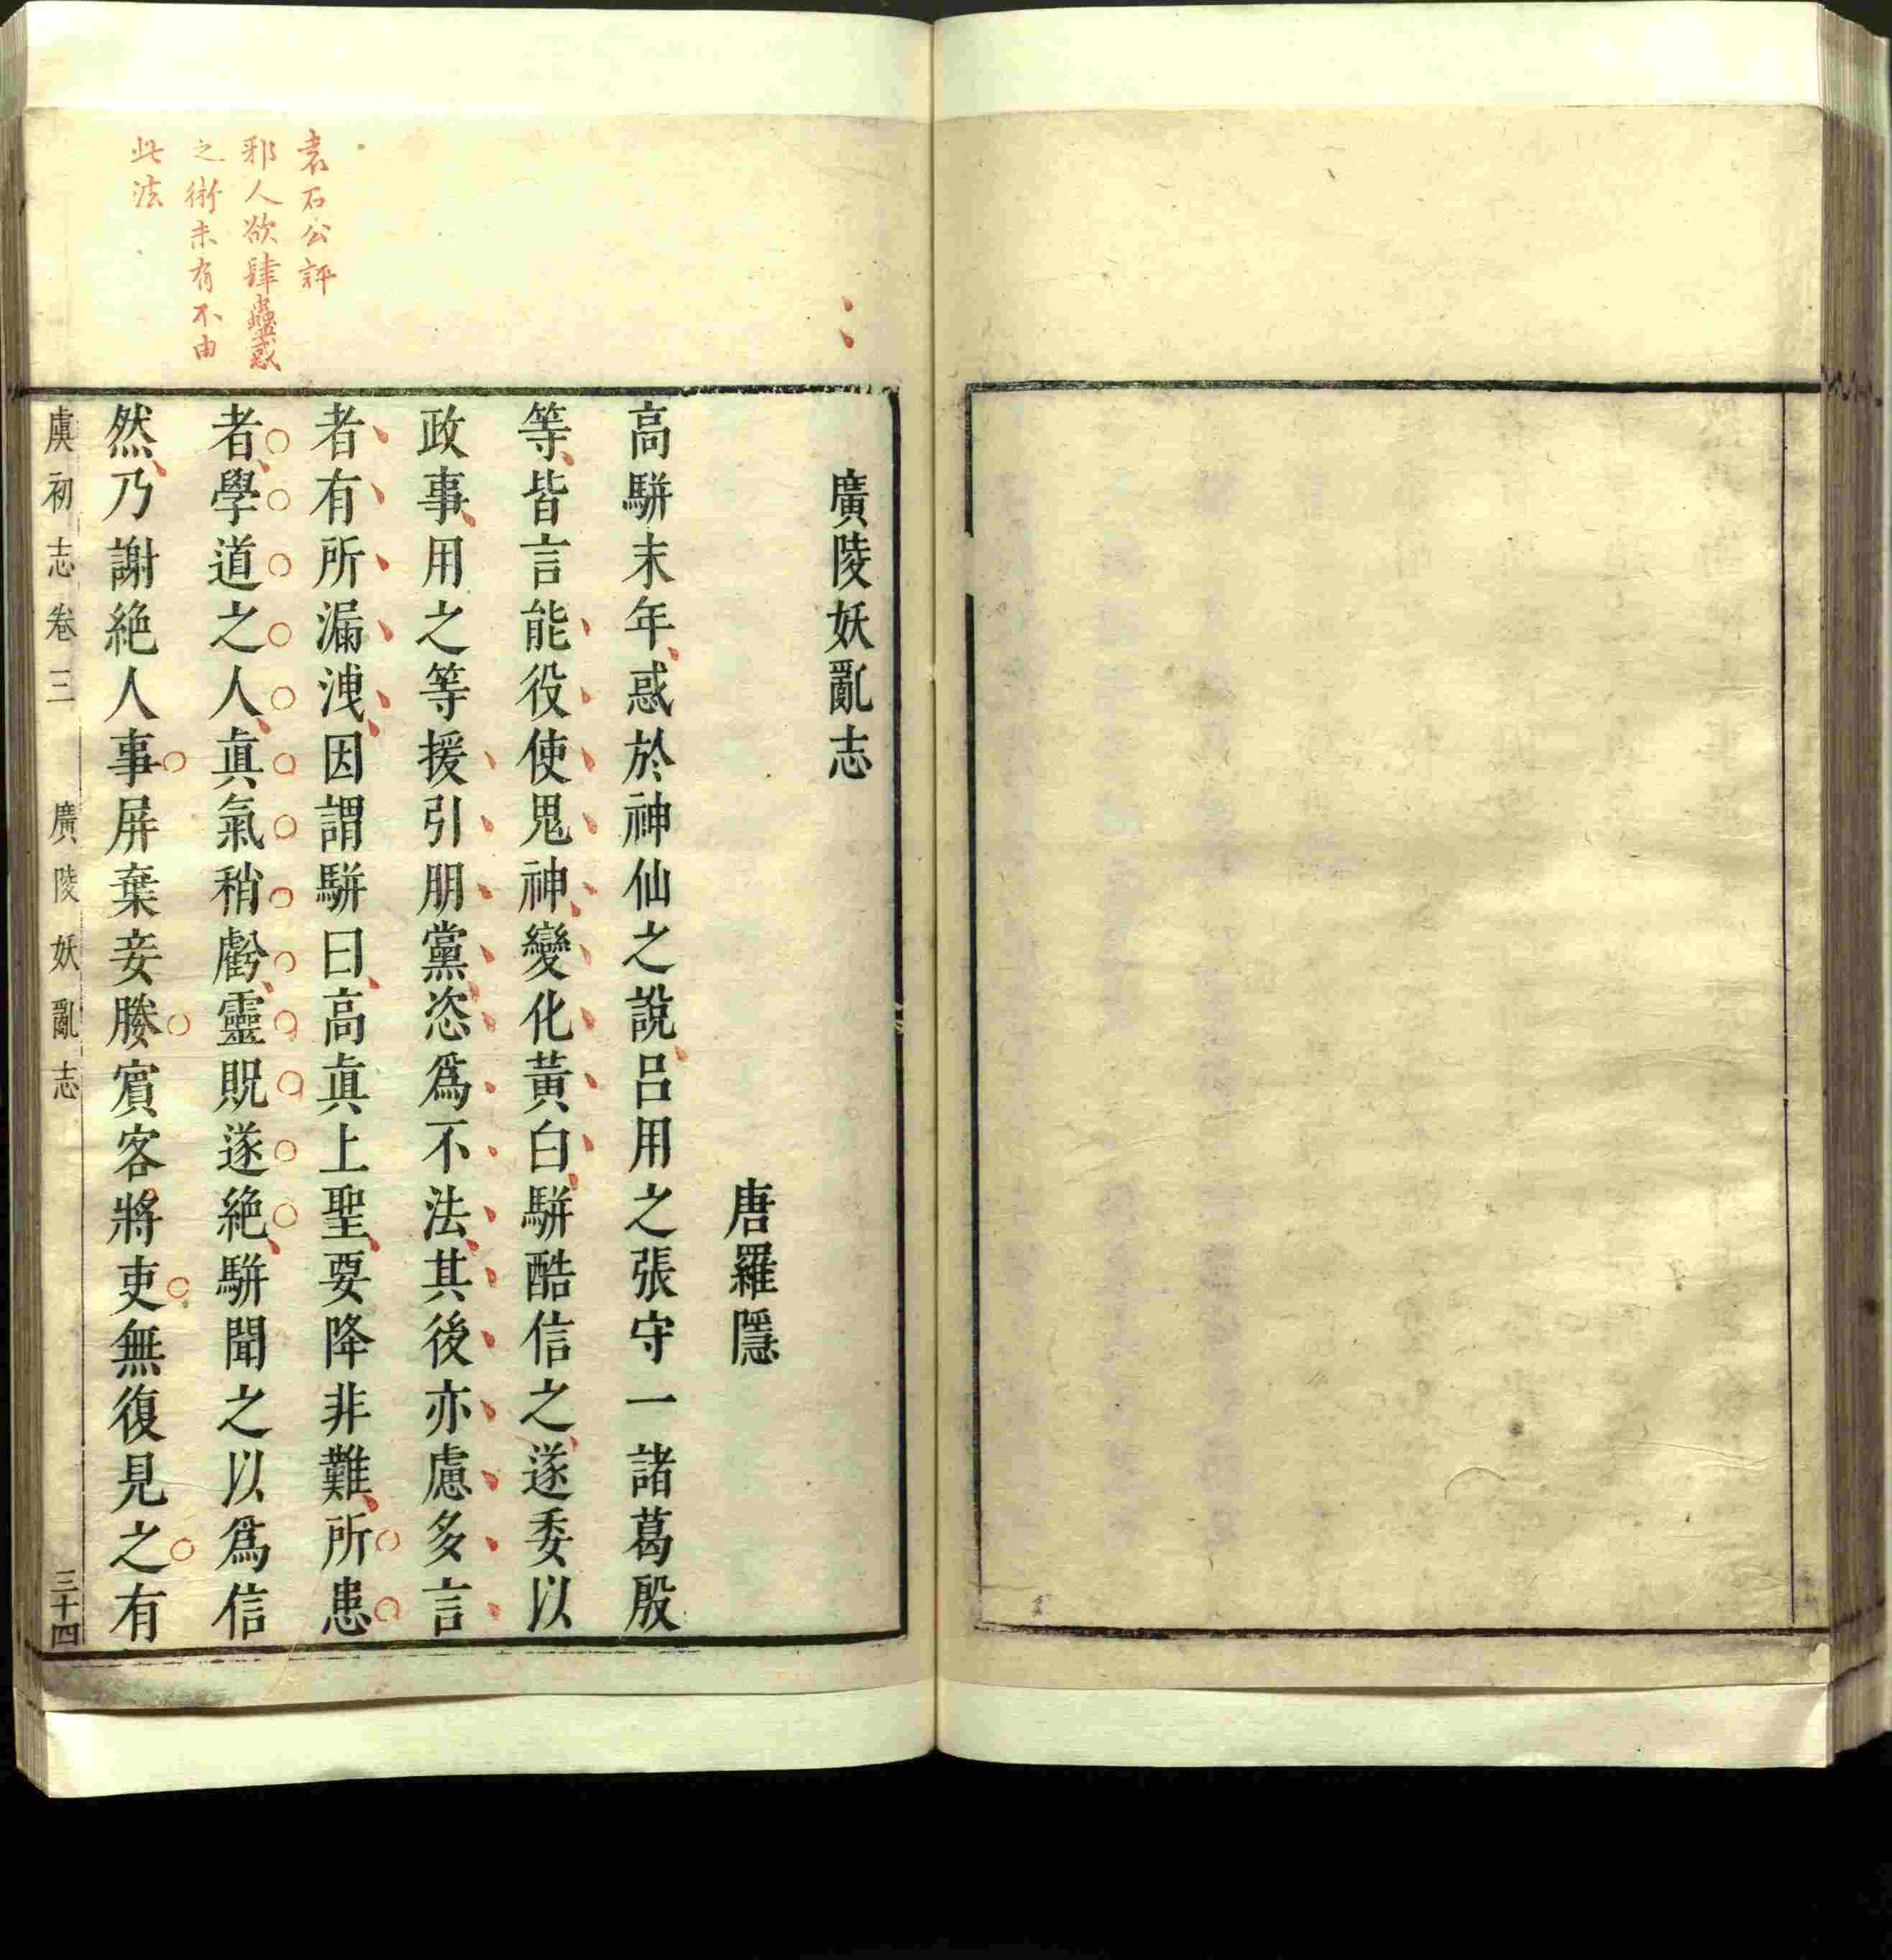 廣陵妖亂志
唐羅隱
高駢末年惑於神仙之說呂用之張守一諸葛殷
等皆言能役使鬼神變化黃白駢酷信之遂委以
政事用之等援引朋黨恣爲不法其後亦慮多言
者有所漏洩因謂駢曰高眞上聖要降非難所患
者學道之人眞氣稍虧靈貺遂絕駢聞之以爲信
然乃謝絕人事屏棄妾媵賓客將吏無復見之有
袁石公評
邪人欲肆蠱惑
之術未有不由
此法
虞初志卷三 廣陵妖亂志 三十四